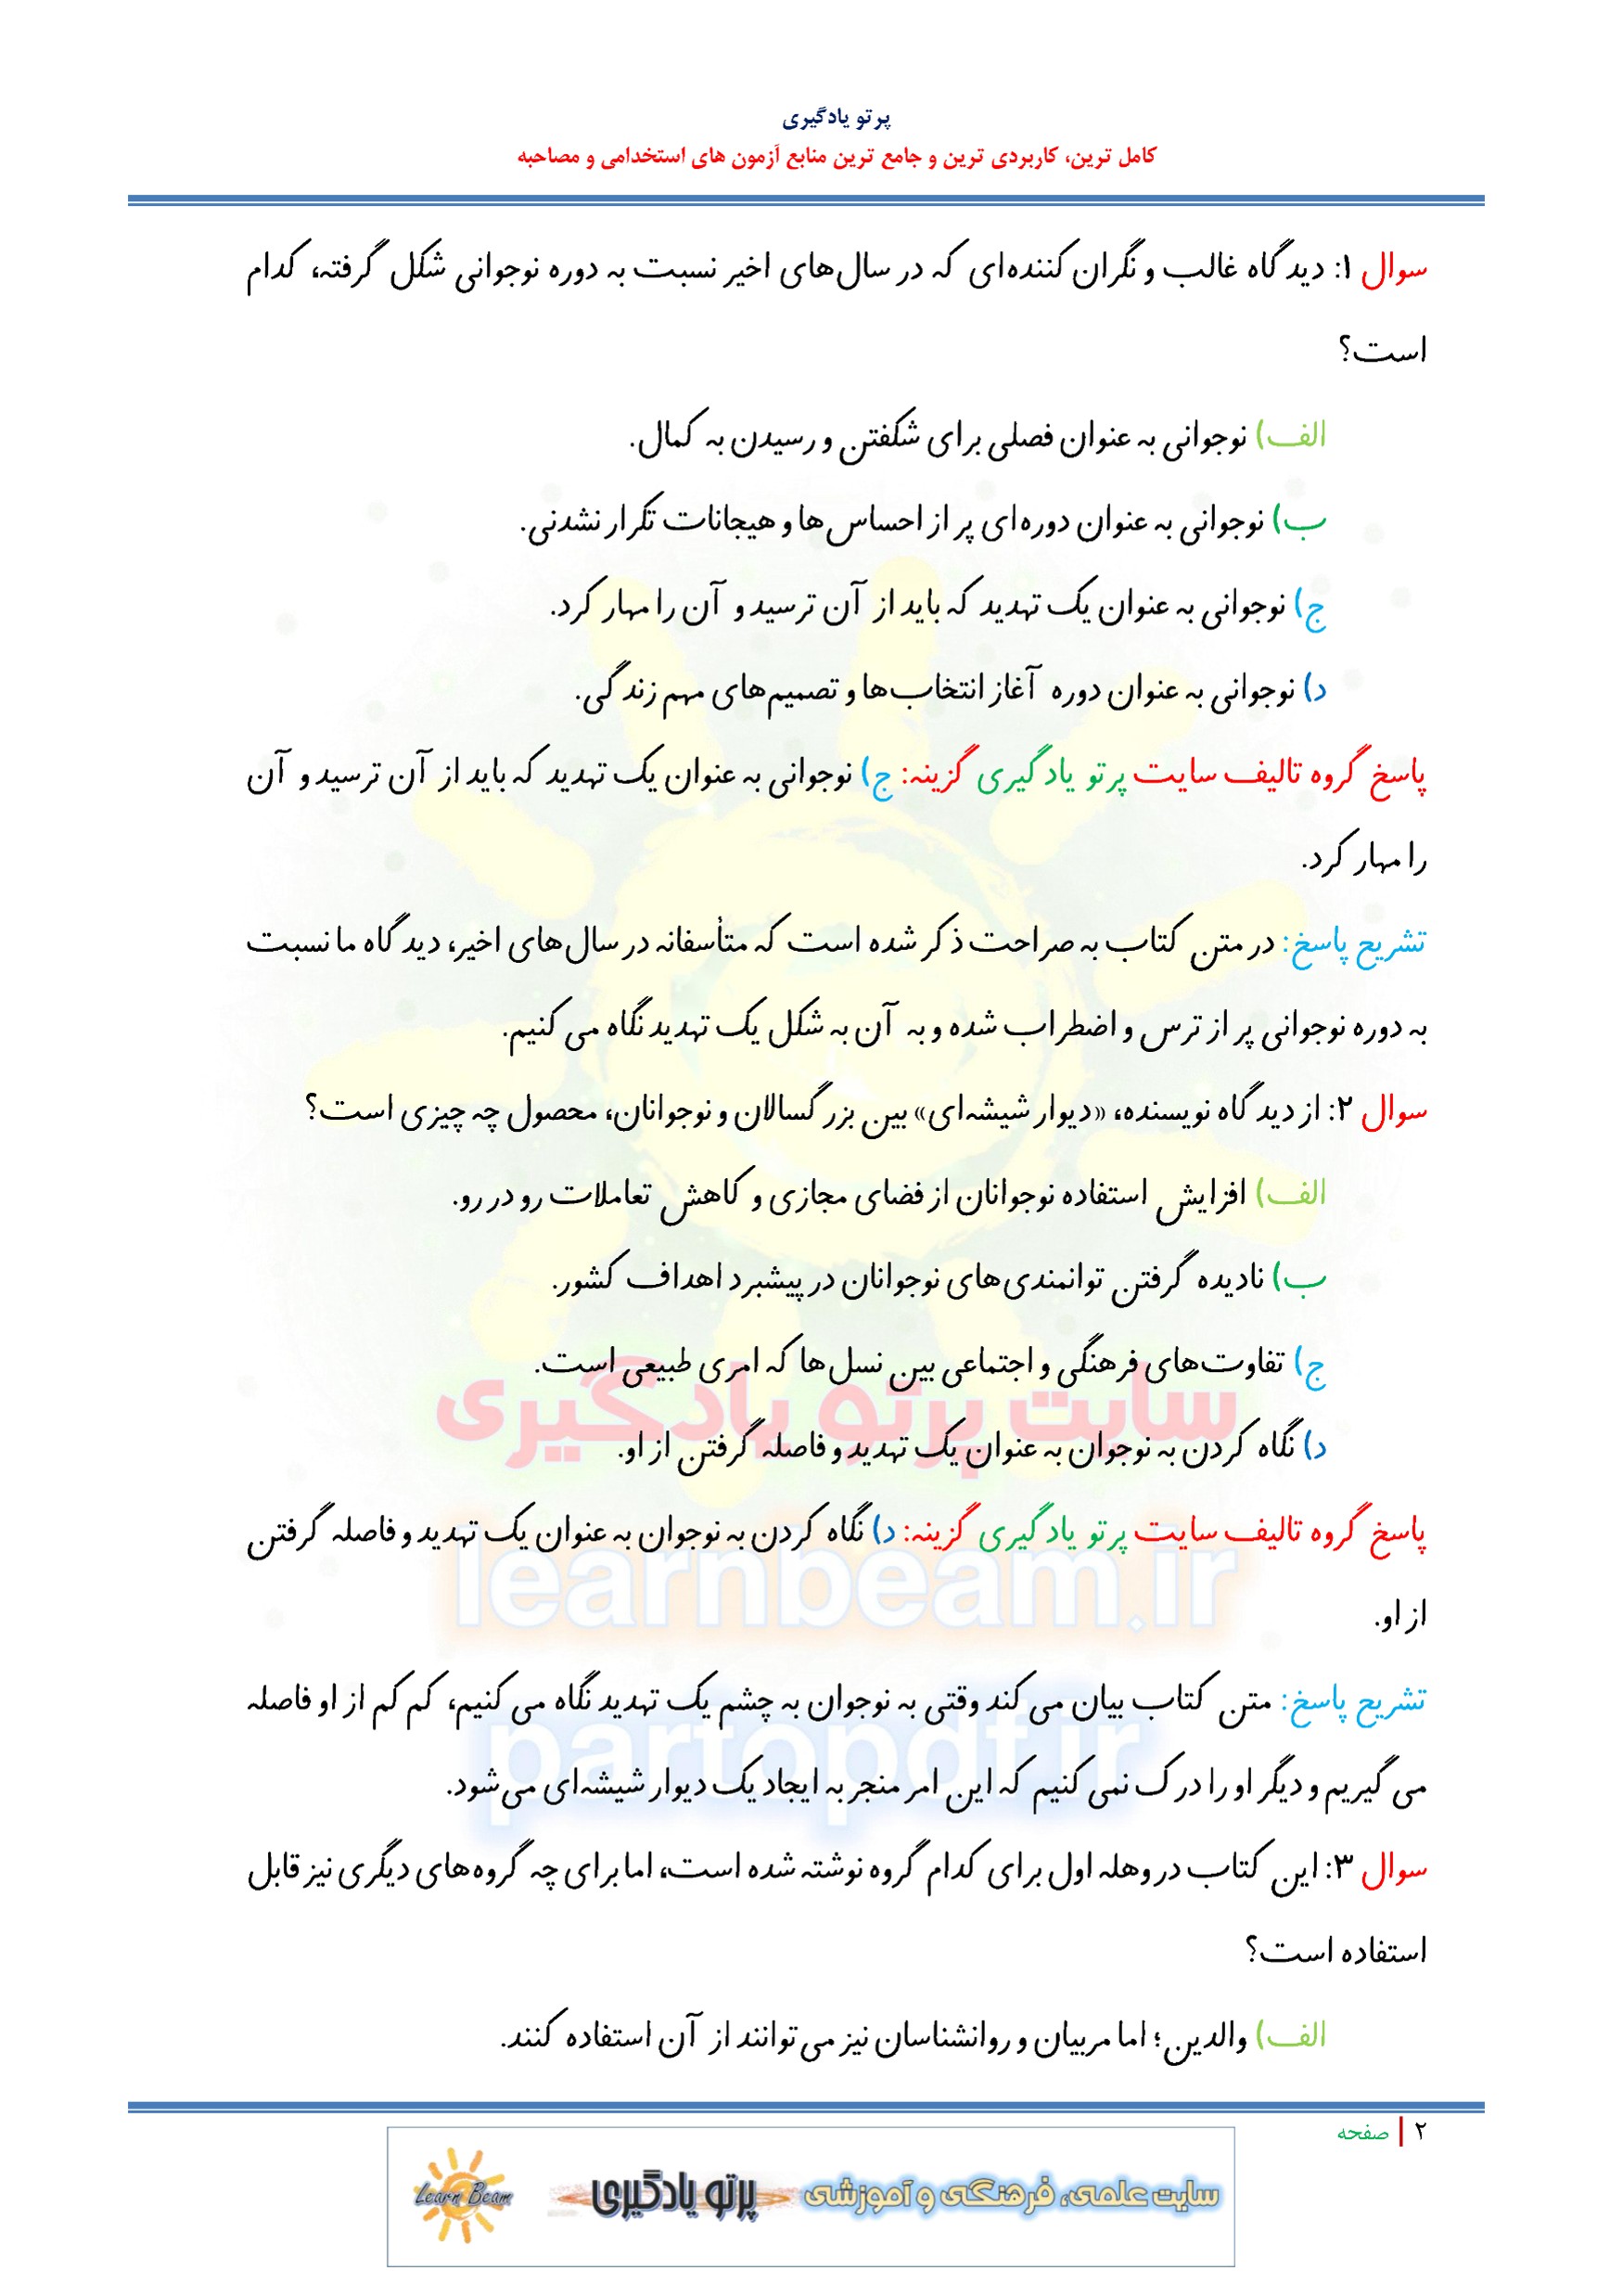 پرتو یادگیری
کامل ترین، کاربردی ترین و جامع ترین منابع آزمون های استخدامی و مصاحبه
سوال ۱: دیدگاه غالب و نگران کننده‌ای که در سال‌های اخیر نسبت به دوره نوجوانی شکل گرفته، کدام
است؟
الف) نوجوانی به عنوان فصلی برای شکفتن و رسیدن به کمال.
ب) نوجوانی به عنوان دوره‌ای پر از احساس‌ها و هیجانات تکرار نشدنی.
ج) نوجوانی به عنوان یک تهدید که باید از آن ترسید و آن را مهار کرد.
د) نوجوانی به عنوان دوره آغاز انتخاب‌ها و تصمیم‌های مهم زندگی.
پاسخ گروه تالیف سایت پرتو یادگیری گزینه: ج) نوجوانی به عنوان یک تهدید که باید از آن ترسید و آن
را مهار کرد.
تشریح پاسخ: در متن کتاب به صراحت ذکر شده است که متأسفانه در سال‌های اخیر، دیدگاه ما نسبت
به دوره نوجوانی پر از ترس و اضطراب شده و به آن به شکل یک تهدید نگاه می کنیم.
سوال ۲: از دیدگاه نویسنده، «دیوار شیشه‌ای» بین بزرگسالان و نوجوانان، محصول چه چیزی است؟
الف) افزایش استفاده نوجوانان از فضای مجازی و کاهش تعاملات رو در رو.
ب) نادیده گرفتن توانمندی‌های نوجوانان در پیشبرد اهداف کشور.
ج) تفاوت‌های فرهنگی و اجتماعی بین نسل‌ها که امری طبیعی است.
سایت پرتو یادگیری
د) نگاه کردن به نوجوان به عنوان یک تهدید و فاصله گرفتن از او.
پاسخ گروه تالیف سایت پرتو یادگیری گزینه: د) نگاه کردن به نوجوان به عنوان یک تهدید و فاصله گرفتن
learnbeam.ir
از او.
تشریح پاسخ: متن کتاب بیان می‌کند وقتی به نوجوان به چشم یک تهدید نگاه می کنیم، کم کم از او فاصله
partopdf.ir
می گیریم و دیگر او را درک نمی کنیم که این امر منجر به ایجاد یک دیوار شیشه‌ای می‌شود.
سوال ۳: این کتاب در وهله اول برای کدام گروه نوشته شده است، اما برای چه گروه‌های دیگری نیز قابل
استفاده است؟
الف) والدین؛ اما مربیان و روانشناسان نیز می توانند از آن استفاده کنند.
۲ | صفحه
سایت علمی، فرهنگی و آموزشی پرتو یادگیری Learn Beam